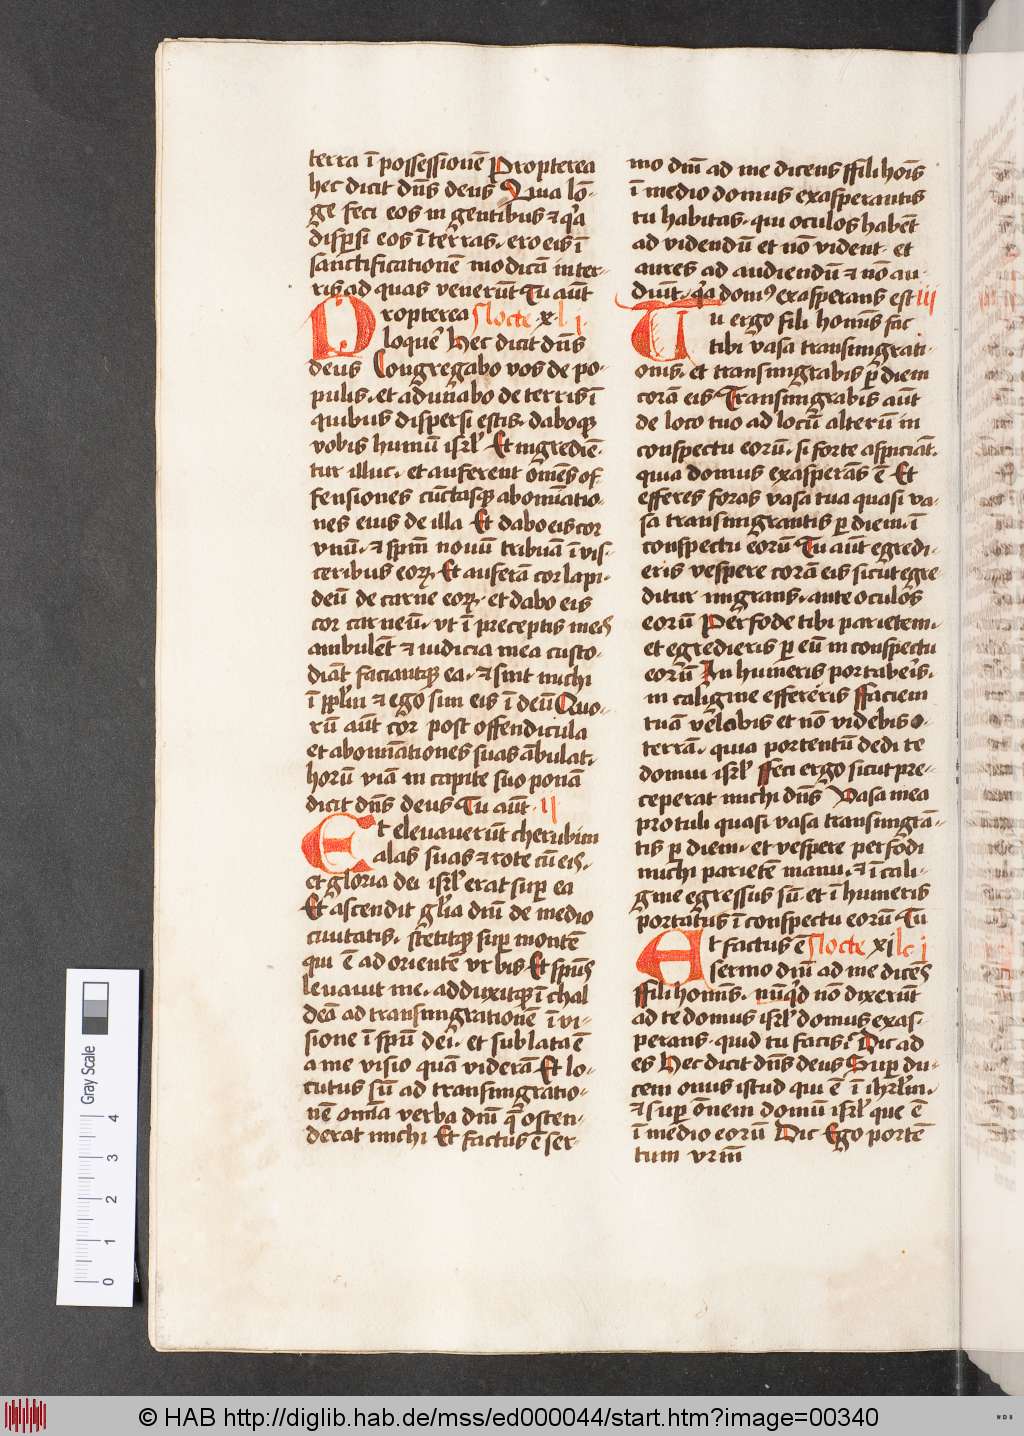 terra ī possessionē Propterea
hec dicit dn̄s deus Quia lō-
ge feci eos in gentibus ⁊ qͥa
disp̄si eos ī terras. ero eis ī
sanctificationē modicā in ter-
ris ad quas venerūt Tu aūt
Propterea Nocte x. l i.
loquer̄ Hec dicit dn̄s
deus Congregabo vos de po-
pulis. et adunabo de terris ī
quibus dispersi estis. daboqꝫ
vobis humū isrl̄ Et ingrediē-
tur illuc. et auferent om̄es of
fensiones cūctasqꝫ abomīatio-
nes eius de illa Et dabo eis cor
vnū. ⁊ spm̄ nouū tribuā ī vis-
ceribus eoꝝ. Et auferā cor lapi-
deū de carne eoꝝ. et dabo eis
cor carneū. vt ī preceptis meis
ambulēt ⁊ iudicia mea custo-
diāt faciantqꝫ ea. ⁊ sint michi
ī ppl̄m ⁊ ego sim eis ī deū Quo-
rū aūt cor post offendicula
et abomīationes suas ābulat.
horū viā in capite suo ponā
dicit dn̄s deus Tu aūt. ii
Et eleuauerūt cherubim
alas suas ⁊ rote cū eis.
et gloria dei isrl̄ erat sup̄ ea
Et ascendit gl̄ia dn̄i de medio
ciuitatis. stetitqꝫ sup̄ montē
qui ē ad orientē vrbis Et spūs
leuauit me. adduxitqꝫ ī chal
deā ad transmigrationē ī vi-
sione ī spū dei. et sublata ē
a me visio quā viderā Et lo-
cutus sū ad transmigratio-
nē omīa verba dn̄i q̄ osten-
derat michi Et factus ē ser-
mo dn̄i ad me dicens ffili hoīs
ī medio domus exasperantis
tu habitas. qui oculos habēt
ad videndū et nō vident. et
aures ad audiendū ⁊ nō au-
diūt. qͥa domꝰ exasperans est iii
Tu ergo fili homīs fac
tibi vasa transmigrati-
onis. et transmigrabis p̄ diem
corā eis Transmigrabis aūt
de loco tuo ad locū alterū in
conspectu eorū. si forte aspiciāt.
quia domus exasperās ē Et
efferes foras vasa tua quasi va-
sa transmigrantis p̄ diem. ī
conspectu eorū Tu aūt egredi-
eris vespere corā eis sicut egre-
ditur migrans. ante oculos
eorū Perfode tibi parietem.
et egredieris p̄ eū in conspectu
eorū In humeris portaberis.
in caligine effereris ffaciem
tuā velabis et nō videbis
terrā. quia portentū dedi te
domui isrl̄ ffeci ergo sicut pre-
ceperat michi dn̄s Vasa mea
protuli quasi vasa transmigrā-
tis p̄ diem. et vespere perfodi
michi parietē manu. ⁊ ī cali-
gine egressus sū. et ī humeris
portatus ī conspectu eorū Tu
Et factus ē Nocte xi lc i
sermo dn̄i ad me dicēs
ffili homīs. nūqͥd nō dixerūt
ad te domus isrl̄ domus exas-
perans. quid tu facis? Dic ad
es Hec dicit dn̄s deus Sup̄ du-
cem onus istud qui ē ī ihrl̄m.
⁊ sup̄ om̄nem domū isrl̄ que ē
ī medio eorū Dic Ego portē
tum vrm̄
Gray Scale
0 1 2 3 4
© HAB http://diglib.hab.de/mss/ed000044/start.htm?image=00340